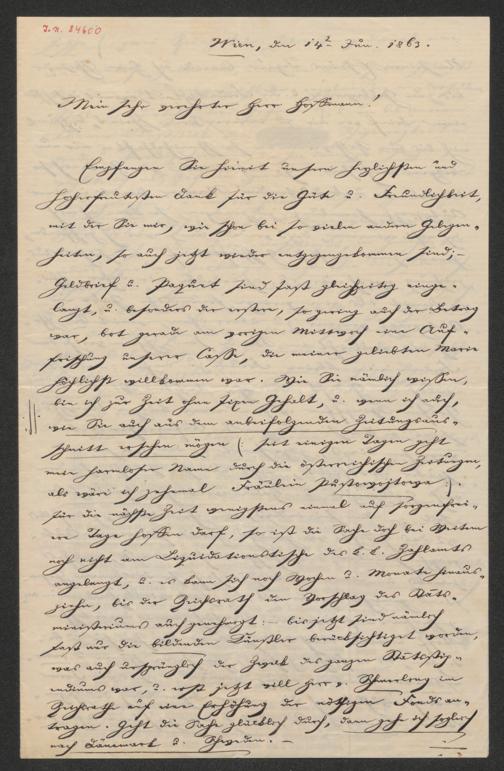 J.N. 84600
Wien, den 14t Jän. 1863.
Mein sehr verehrter Herr Hoffmann!
Empfangen Sie hiemit unsern herzlichsten und
hocherfreutesten Dank für die Güte u. Freundlichkeit,
mit der Sie mir, wie schon bei so vielen andern Gelegen-
heiten, so auch jetzt wieder entgegengekommen sind; –
Geldbrief u. Paquet sind fast gleichzeitig einge-
langt, u. besonders der erstere, so gering auch der Betrag
war, bot gerade am vorigen Mittwoch eine Auf-
frischung unserer Cassa, die meiner geliebten Marie
höchlichst willkommen war. Wie Sie nämlich wissen,
bin ich zur Zeit ohne fixen Gehalt, u. wenn ich auch,
wie Sie auch aus dem anbeifolgenden Zeitungsaus-
schnitt ersehen mögen (: seit einigen Tagen geht
mein harmloser Name durch die österreichischen Zeitungen,
als wäre ich zehnmal Fräulein Pustowojtowa :).
für die nächste Zeit wenigstens einmal auf sorgenfrei-
ere Tage hoffen darf, so ist die Sache doch bei Weitem
noch nicht am Liquidationstische des k. k. Zahlamts
angelangt, u. es kann sich noch Wochen u. Monate hinaus-
ziehn, bis der Reichsrath den Vorschlag des Staats-
ministeriums genehmigt: – bis jetzt sind nämlich
fast nur die bildenden Künstler berücksichtiget worden,
was auch ursprünglich der Zweck des ganzen Staatsstip-
endiums war, u. erst jetzt will Herr v. Schmerling im
Reichsrathe auf eine Erhöhung des nöthigen Fondes an-
tragen. Geht die Sache glücklich durch, dann geh ich sogleich
nach Dänemark u. Schweden. –